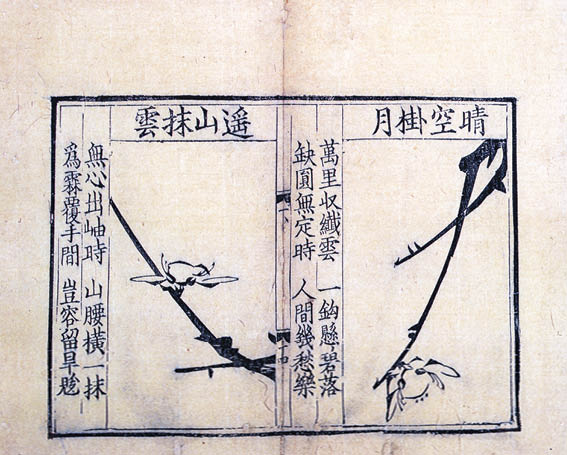 晴空掛月
萬里収纖雲 一鈎懸碧落
缺圓無定時 人間幾愁樂
遥山抹雲
無心出岫時 山腰橫一抹
爲霖覆手間 豈容留旱魃